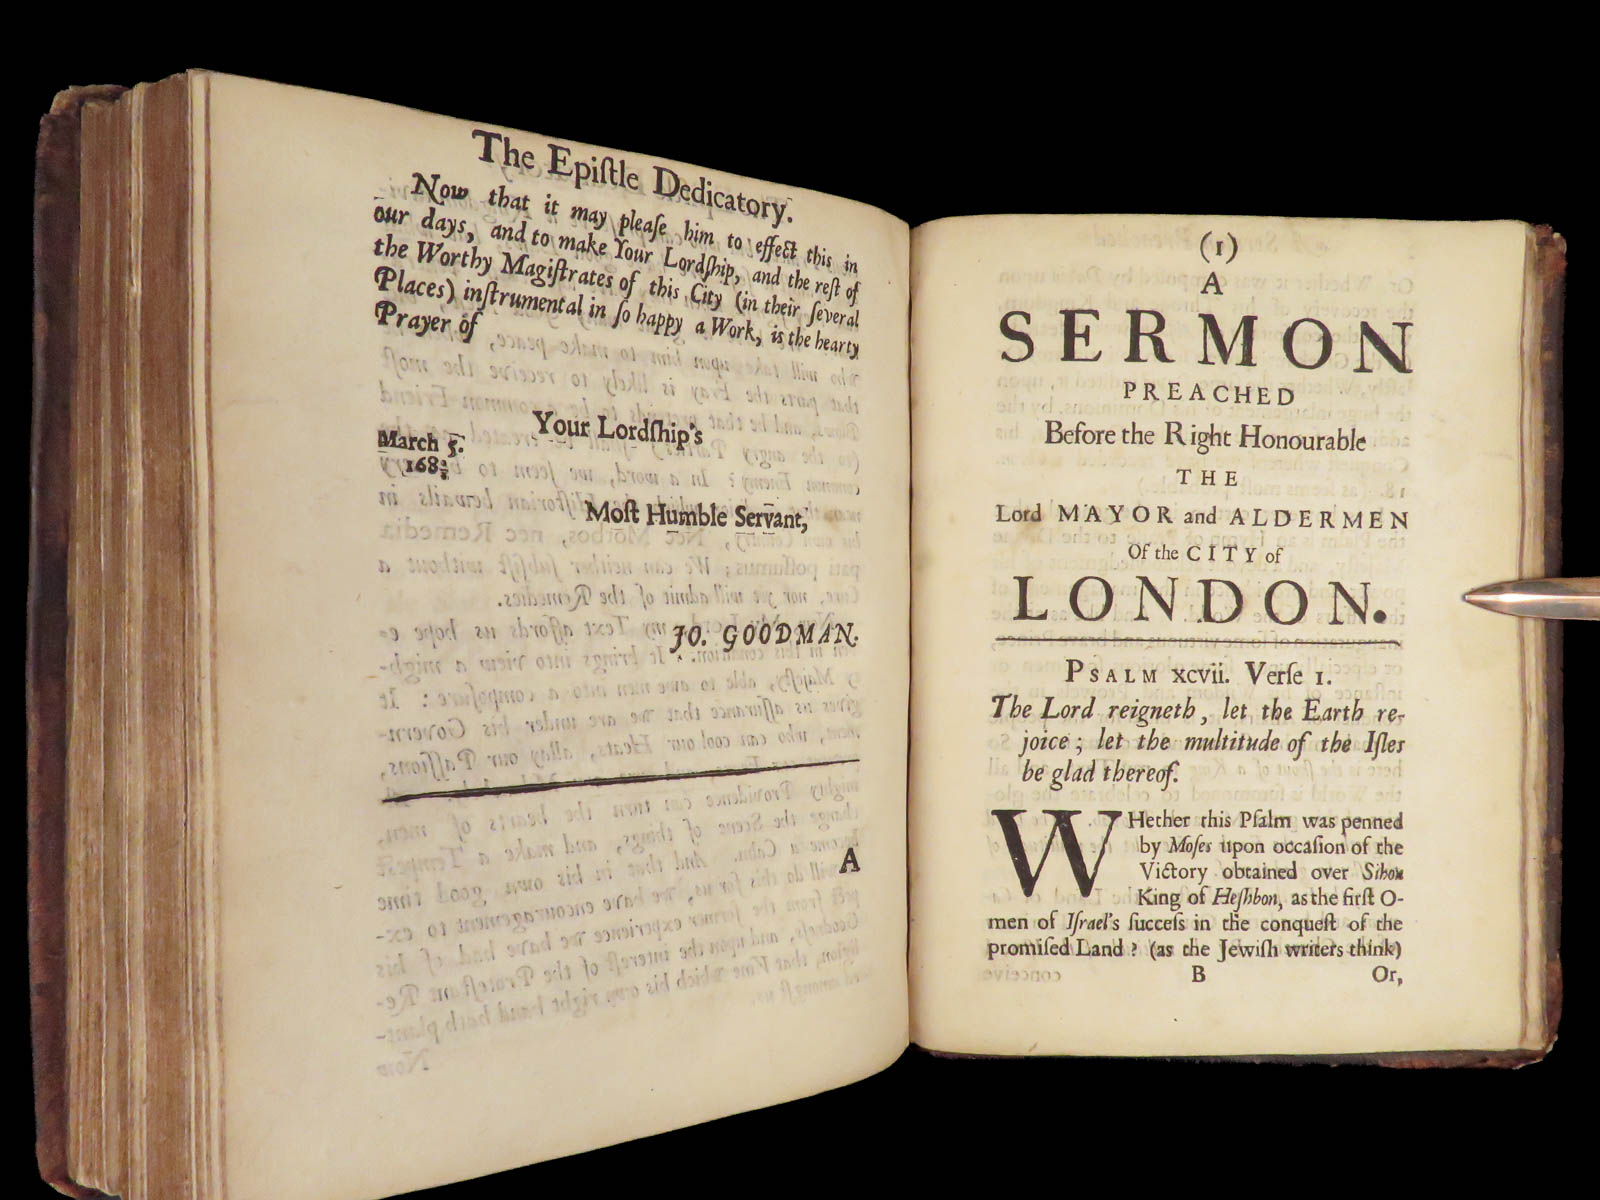 The Epiſtle Dedicatory.
Now that it may pleaſe him to effect this in
our days, and to make Your Lordſhip, and the reſt of
the Worthy Magiſtrates of this City (in their ſeveral
Places) inſtrumental in ſo happy a Work, is the hearty
Prayer of
Your Lordſhip's
March 5.
168
Moſt Humble Servant,
JO. GOODMAN.
A
(1)
A
SERMON
PREACHED
Before the Right Honourable
THE
Lord MAYOR and ALDERMEN
Of the CITY of
LONDON.
PSALM xcvii. Verſe 1.
The Lord reigneth, let the Earth re-
joice; let the multitude of the Iſles
be glad thereof.
WHether this Pſalm was penned
by Moſes upon occaſion of the
Victory obtained over Sihon
King of Heſhbon, as the firſt O-
men of Iſrael's ſucceſs in the conqueſt of the
promiſed Land? (as the Jewiſh writers think)
B Or,